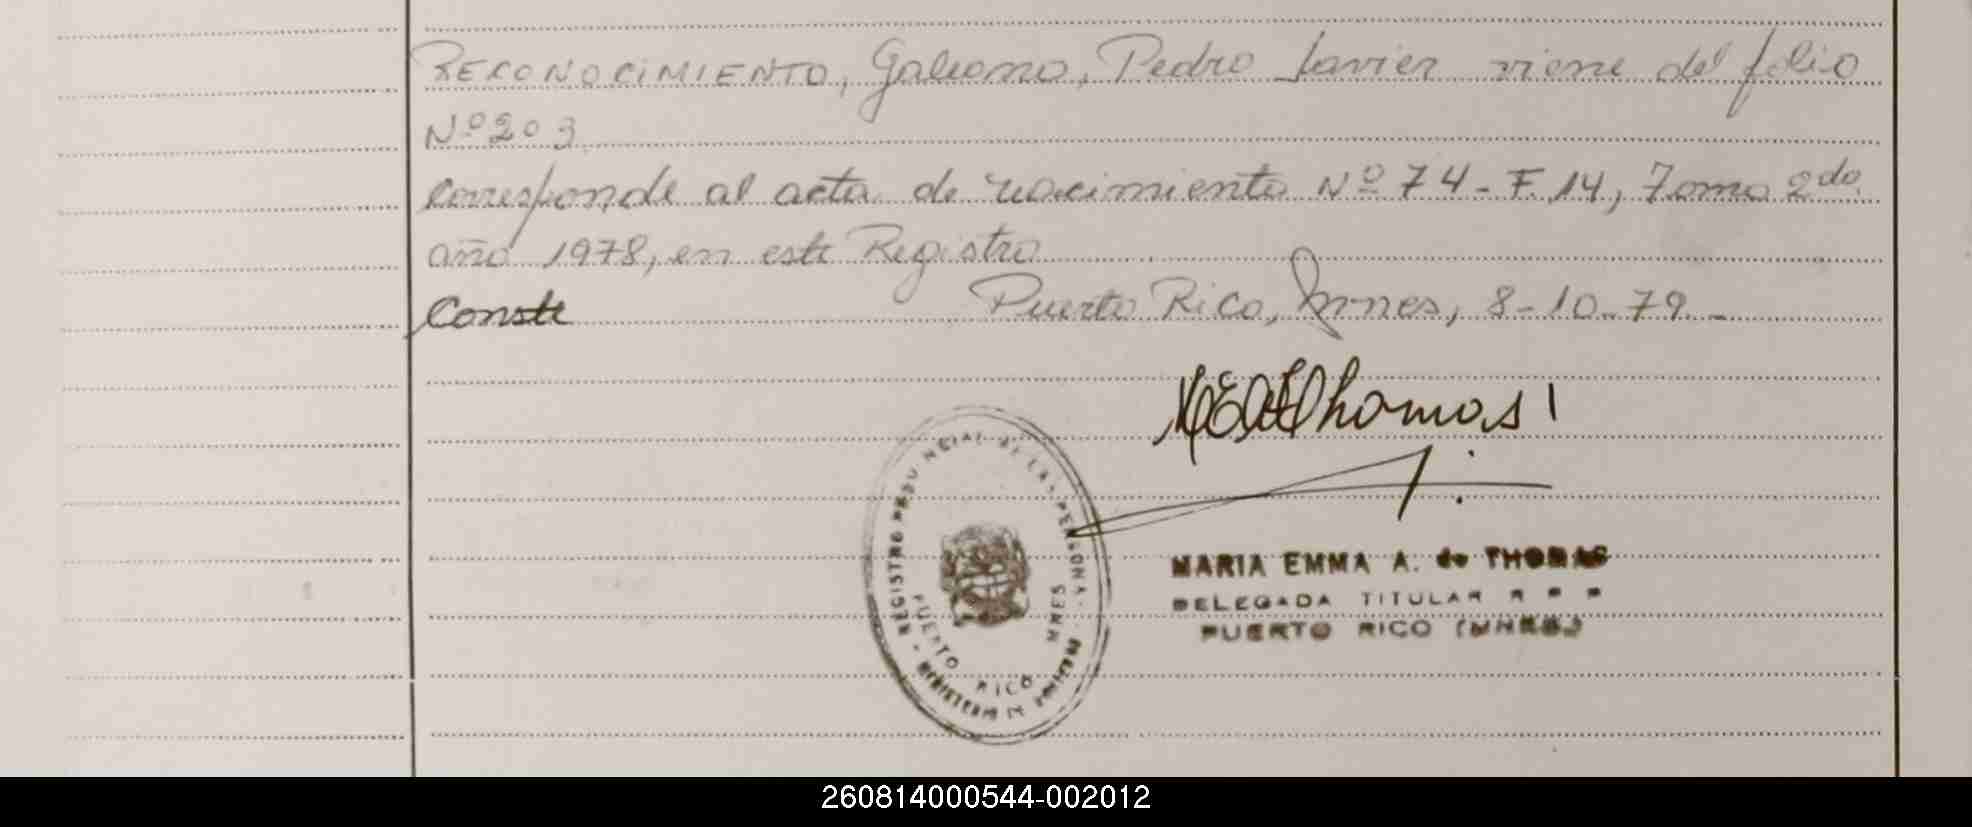 RECONOCIMIENTO, Galeano, Pedro Javier viene del folio
Nº 203
corresponde al acta de nacimiento Nº 74 - F. 14, Tomo 2do.
año 1978, en este Registro
Conste Puerto Rico, Mnes, 8-10-79.-
MEAdeThomas
REGISTRO PROVINCIAL DE LAS PERSONAS - MINISTERIO DE
PUERTO RICO MNES
MARIA EMMA A. de THOMAS
DELEGADA TITULAR R P P
PUERTO RICO (MNES.)
260814000544-002012